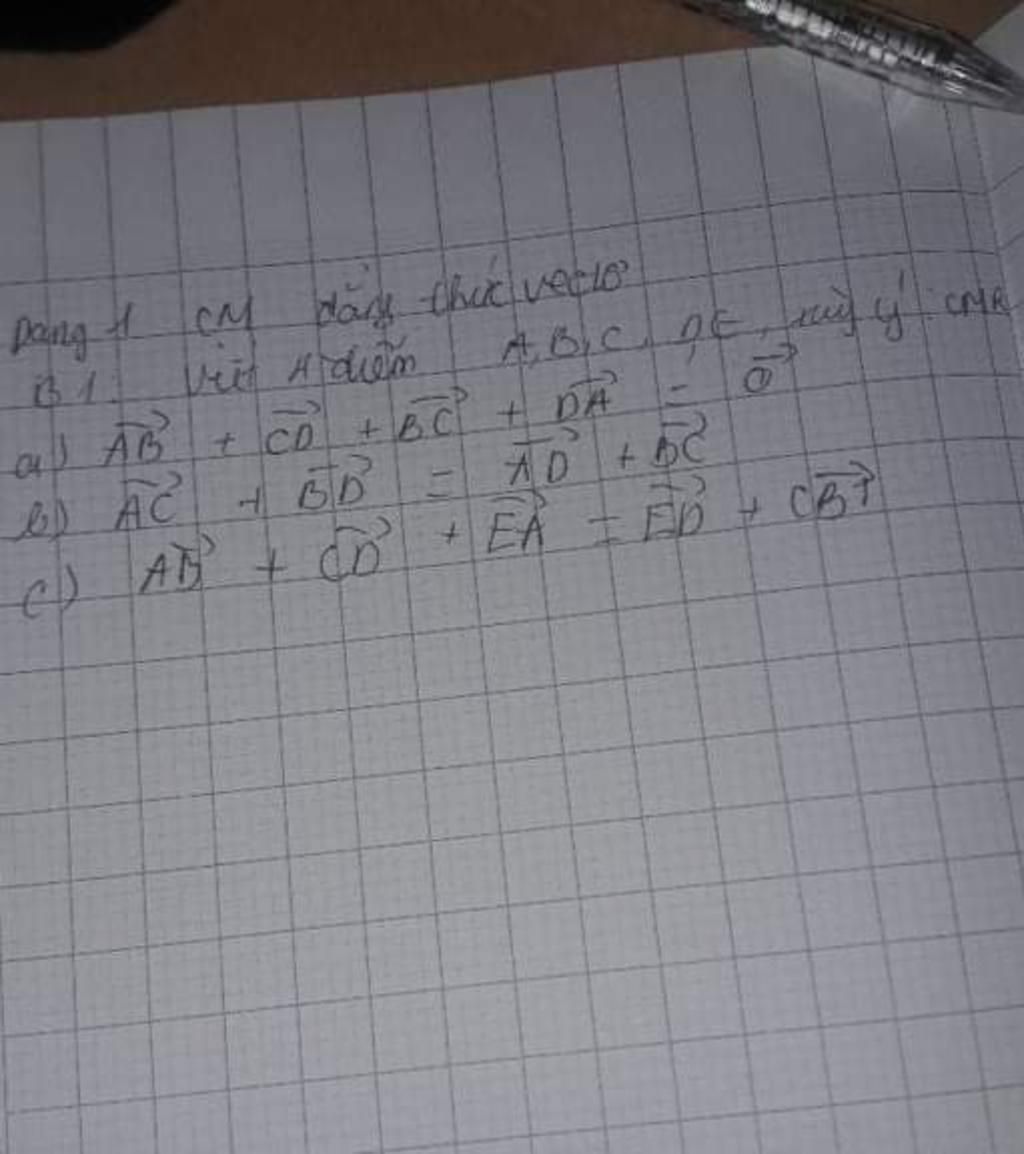 Dạng 1 CM đẳng thức vectơ
B1. Với 4 điểm A, B, C, D, E, tuỳ ý CMR
a) AB + CD + BC + DA = 0
b) AC + BD = AD + BC
c) AB + CD + EA = ED + CB